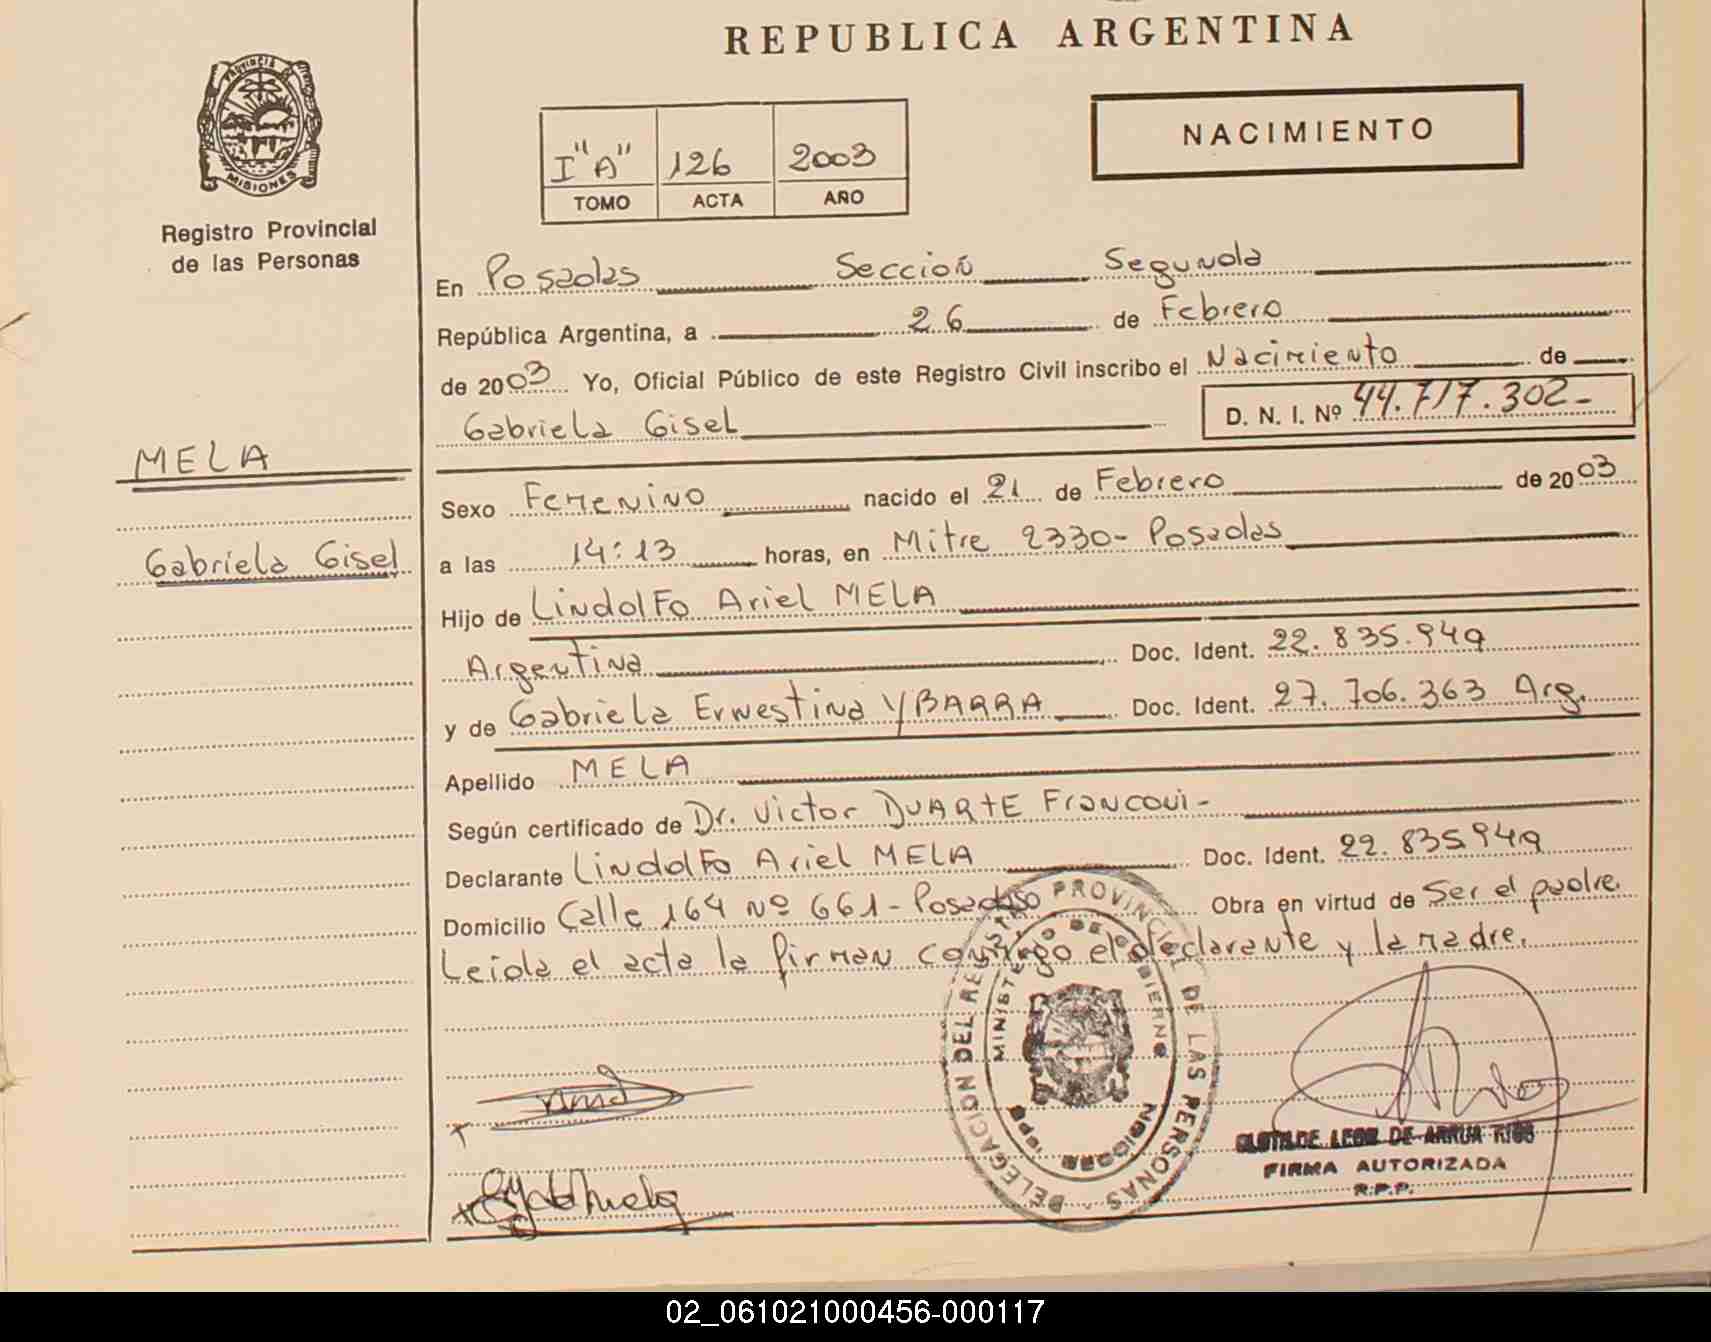 REPUBLICA ARGENTINA
PROVINCIA DE
MISIONES
Registro Provincial
de las Personas
I "A" 126 2003
TOMO ACTA AÑO
NACIMIENTO
En Posadas Sección Segunda
República Argentina, a 26 de Febrero
de 2003 Yo, Oficial Público de este Registro Civil inscribo el Nacimiento de
Gabriela Gisel D. N. I. Nº 44.717.302-
MELA
Gabriela Gisel
Sexo Femenino nacido el 21 de Febrero de 2003
a las 14:13 horas, en Mitre 2330- Posadas
Hijo de Lindolfo Ariel MELA
Argentina Doc. Ident. 22.835.949
y de Gabriela Ernestina YBARRA Doc. Ident. 27.706.363 Arg.
Apellido MELA
Según certificado de Dr. Victor DUARTE
Declarante Lindolfo Ariel MELA Doc. Ident. 22.835.949
Domicilio Calle 164 Nº 661- Posadas Obra en virtud de Ser el padre.
Leida el acta la firman conmigo el declarante y la madre.
DELEGACION DEL REGISTRO PROVINCIAL DE LAS PERSONAS
MINISTERIO DE GOBIERNO
CLOTILDE LEON DE ARRUA RIOS
FIRMA AUTORIZADA
R.P.P.
02_061021000456-000117